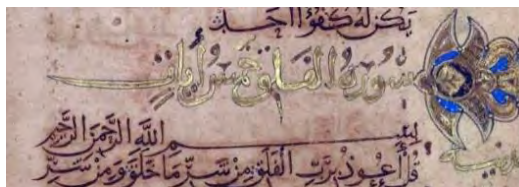 يكن له كفوا احد
سورة الفلق خمس آيات
بسم الله الرحمن الرحيم
قل أعوذ برب الفلق من شر ما خلق ومن شر